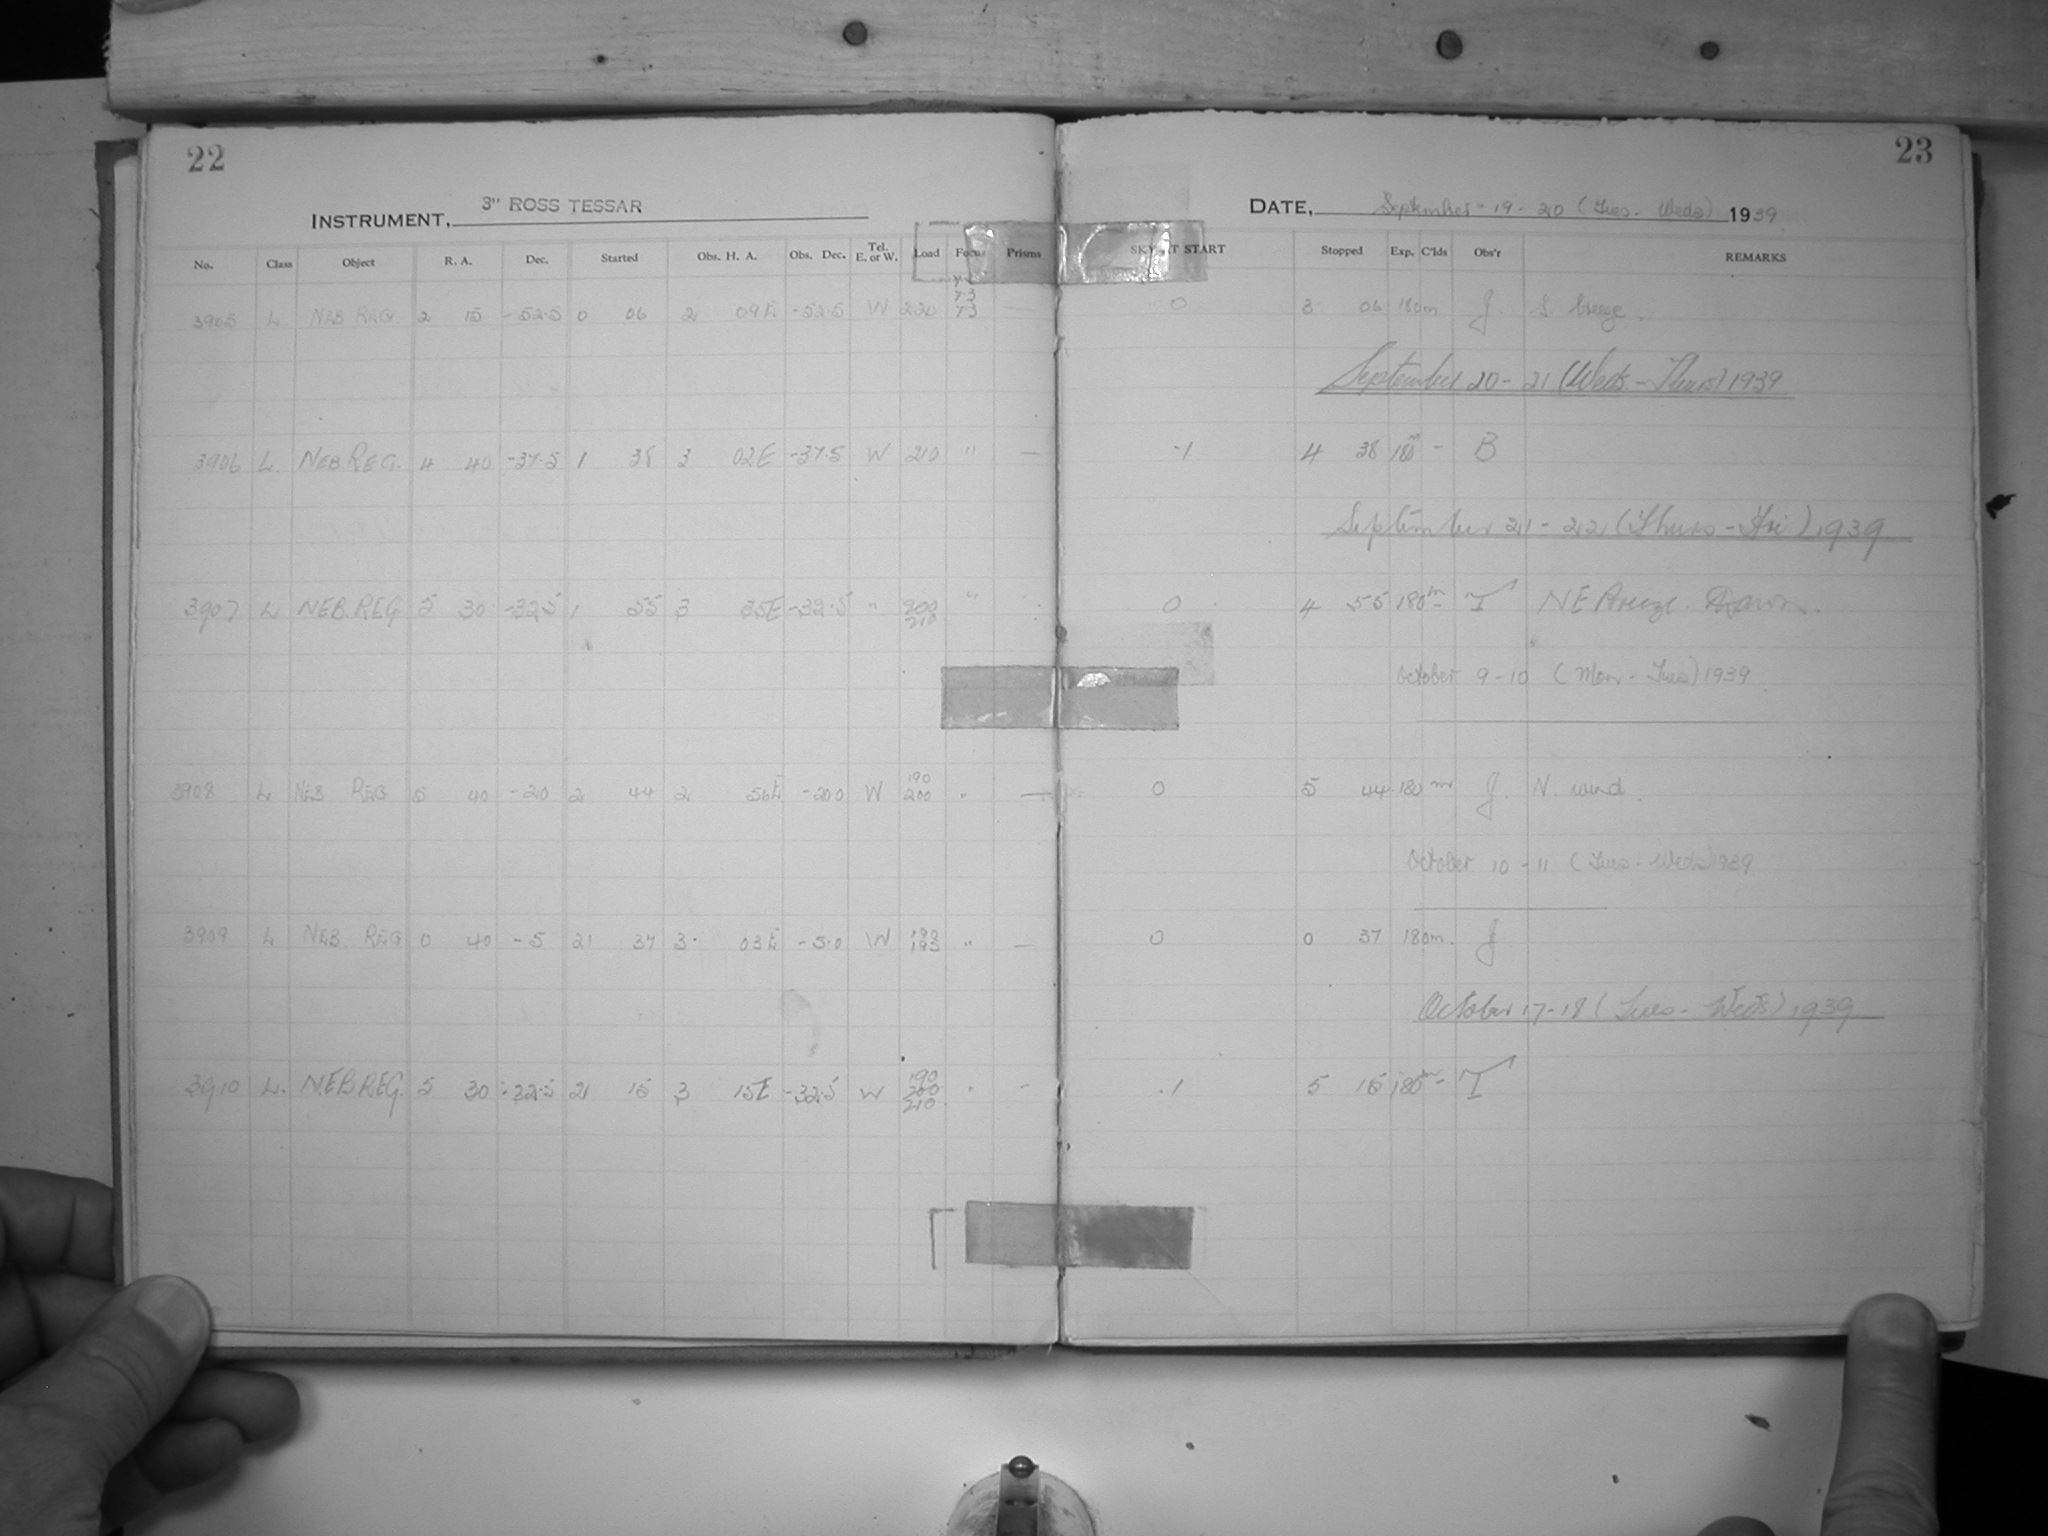 22
23
INSTRUMENT, 3" ROSS TESSAR
DATE, September 19-20 (Tues - Weds) 1939
No. Class Object R. A. Dec. Started Obs. H. A. Obs. Dec. Tel. E. or W. Load Focus Prisms SKY AT START Stopped Exp. C'lds Obs'r REMARKS
3905 L NEB REG. 2 15 -52.5 0 06 2 09E -52.5 W 220 7.3 7.3 0 3 06 180m J. S. breeze.
September 20-21 (Weds. - Thurs) 1939
3906 L. NEB.REG. 4 40 -37.5 1 38 3 02E -37.5 W 210 " — -1 4 38 180m - B
September 21-22 (Thurs - Fri) 1939
3907 L NEB.REG 5 30 -32.5 1 55 3 35E -32.5 " 200 210 " - 0 4 55 180m - T NE Breeze. Dawn.
October 9-10 (Mon - Tues) 1939
3908 L NEB REG 5 40 -20 2 44 2 56E -20.0 W 190 200 " — 0 5 44 180m J. N. wind.
October 10-11 (Tues - Weds) 1939
3909 L NEB. REG 0 40 -5 21 37 3 03E -5.0 W 193 " — 0 0 37 180m. J
October 17-18 (Tues - Weds) 1939
3910 L. NEB REG. 5 30 -32.5 2 15 3 15E -32.5 W 190 200 210 " - -1 5 15 180m - T